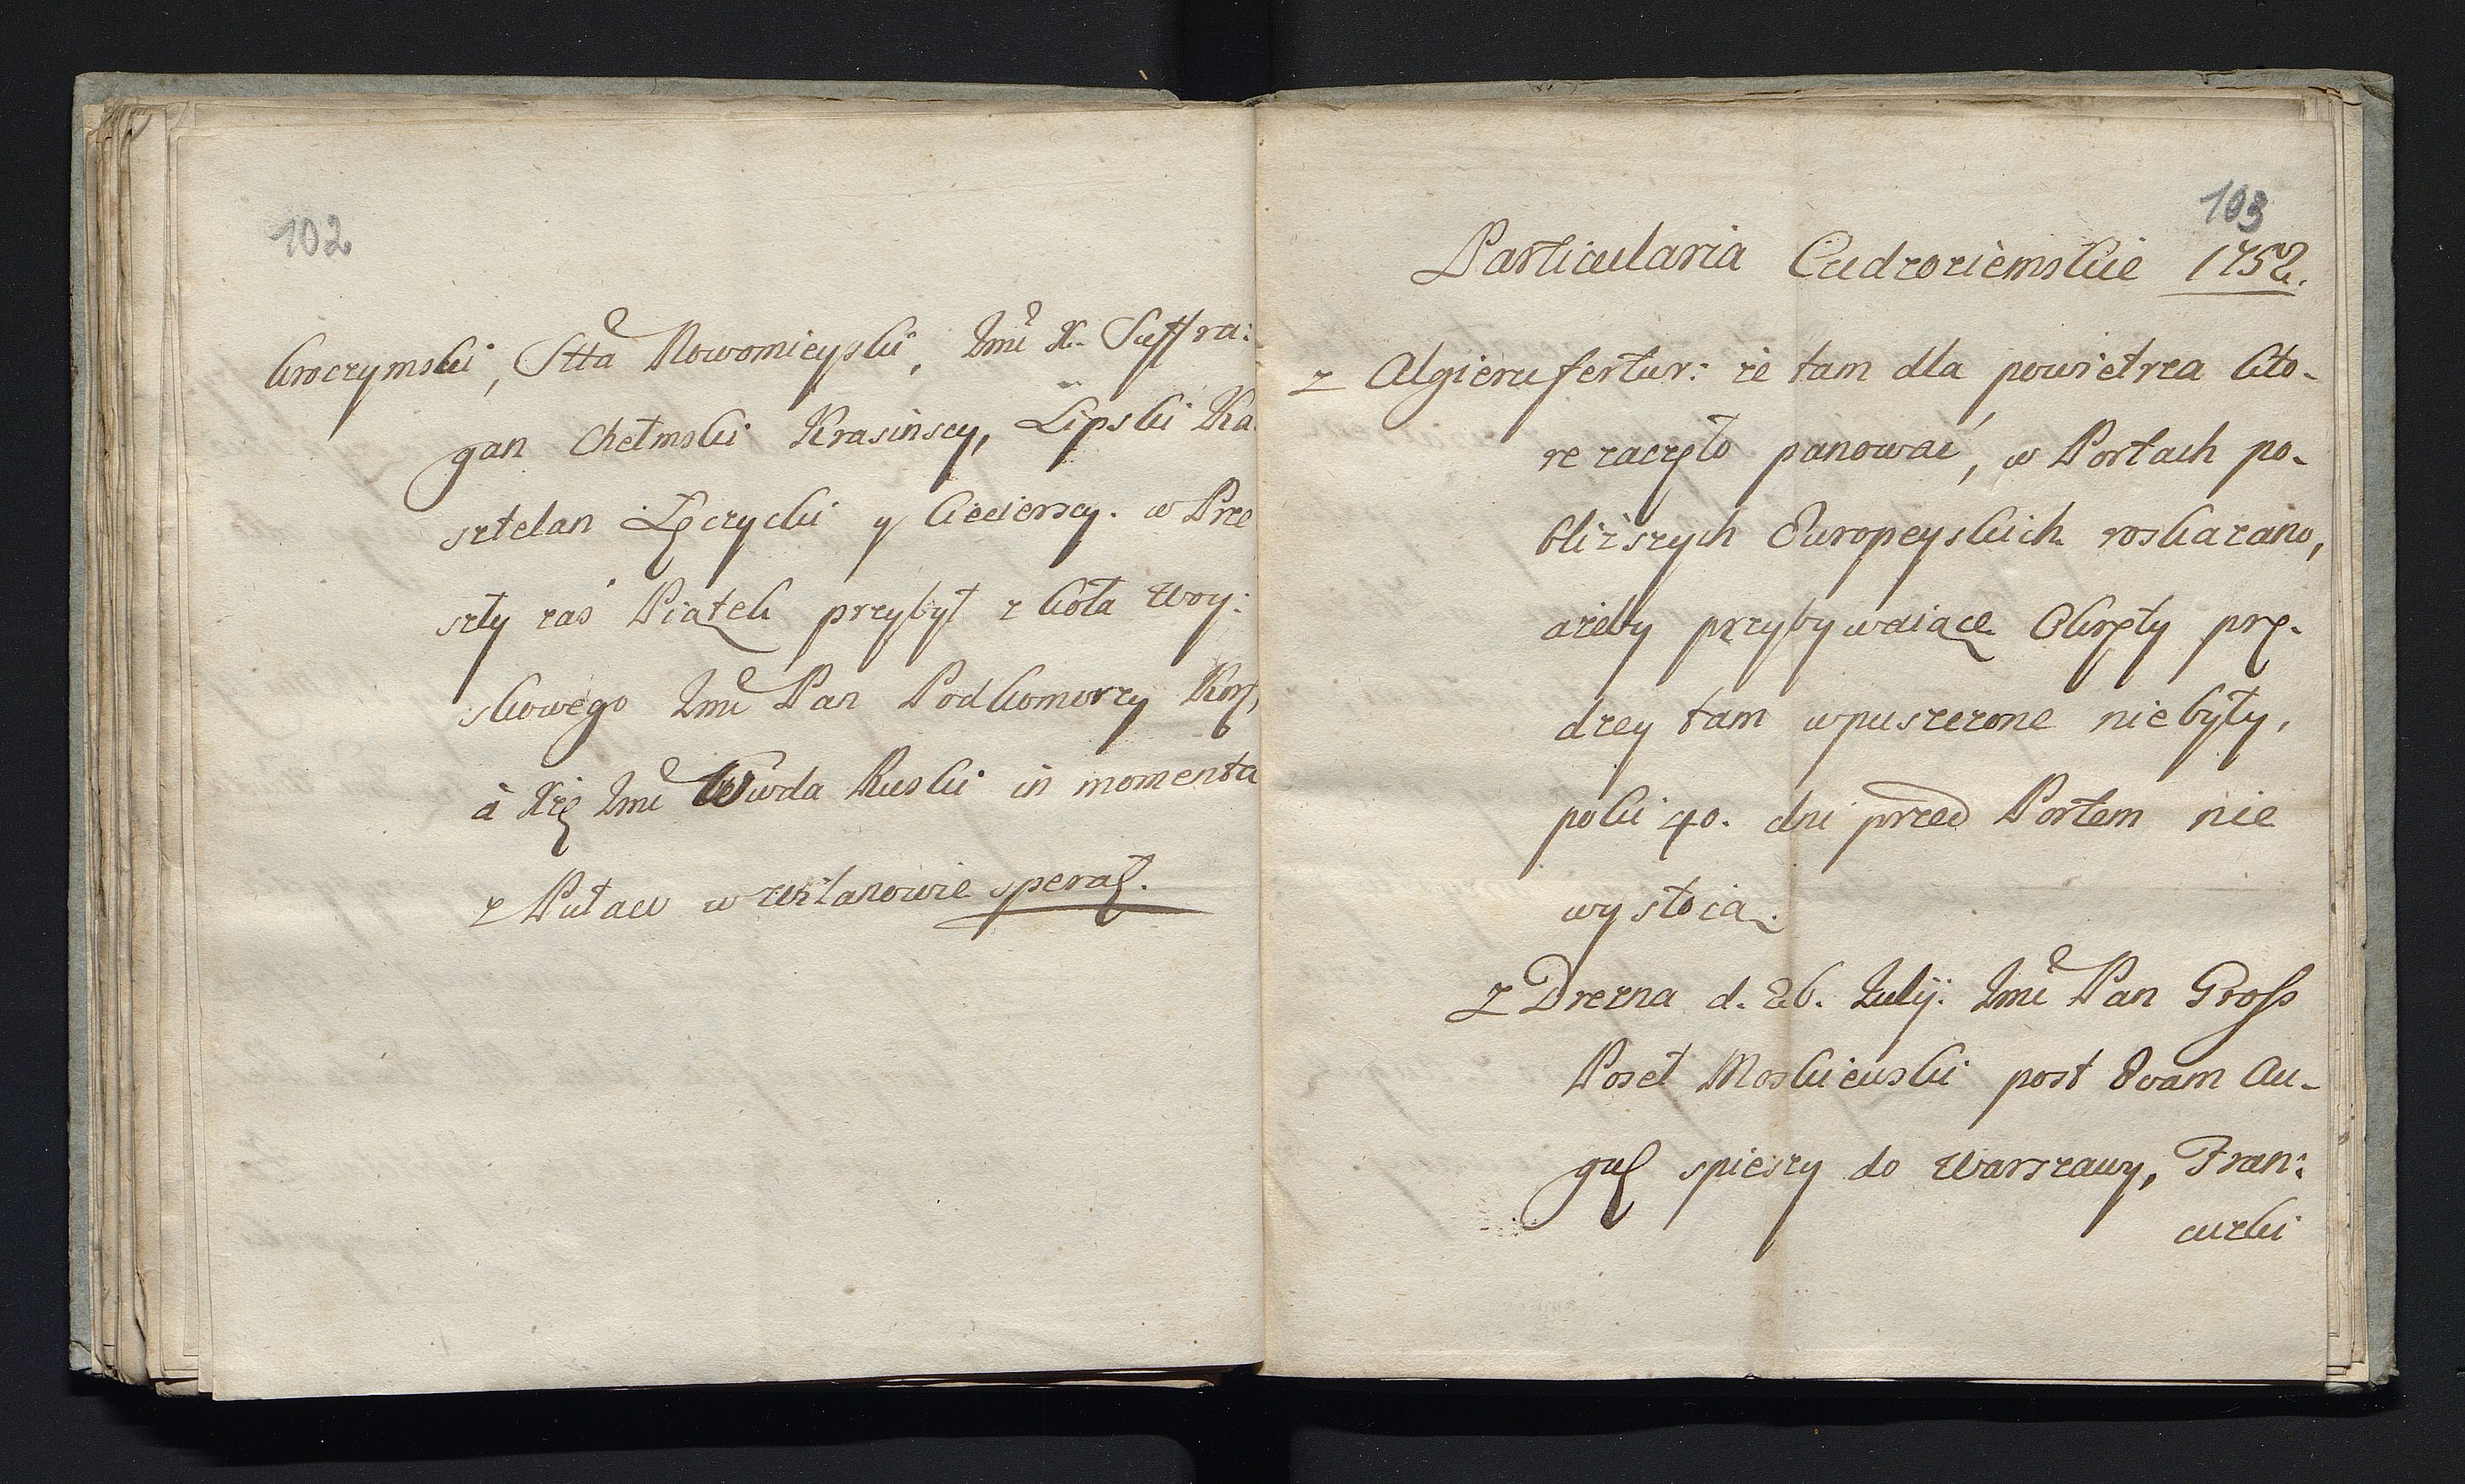 102
kroczymski, Stta Nowomieyski, Jmć X. Suffra:
gan Chełmski Krasinscy, Lipski Ka
sztelan Lęczycki y Ciecierscy. w Prze
szły zaś Piątek przybył z koła Woy:
skowego Jmć Pan Podkomorzy Kor,
à Xżę Jmć Wwda Ruski in momenta
z Puław w Wilanowie sperat.
103
Particularia Cudzoziemskie 1752.
z Algieru fertur: że tam dla powietrza kto-
re zaczęło panować, w Portach po-
bliższych Europeyskich roskazano,
ażeby przybywaiące Okręty prę-
dzey tam wpuszczone nie były,
poki 40. dni przed Portem nie
wystoią.
z Drezna d. 26. Julij. Jmć Pan Gross
Poseł Moskiewski post 8vam Au-
gus spieszy do Warszawy, Fran:
cuzki